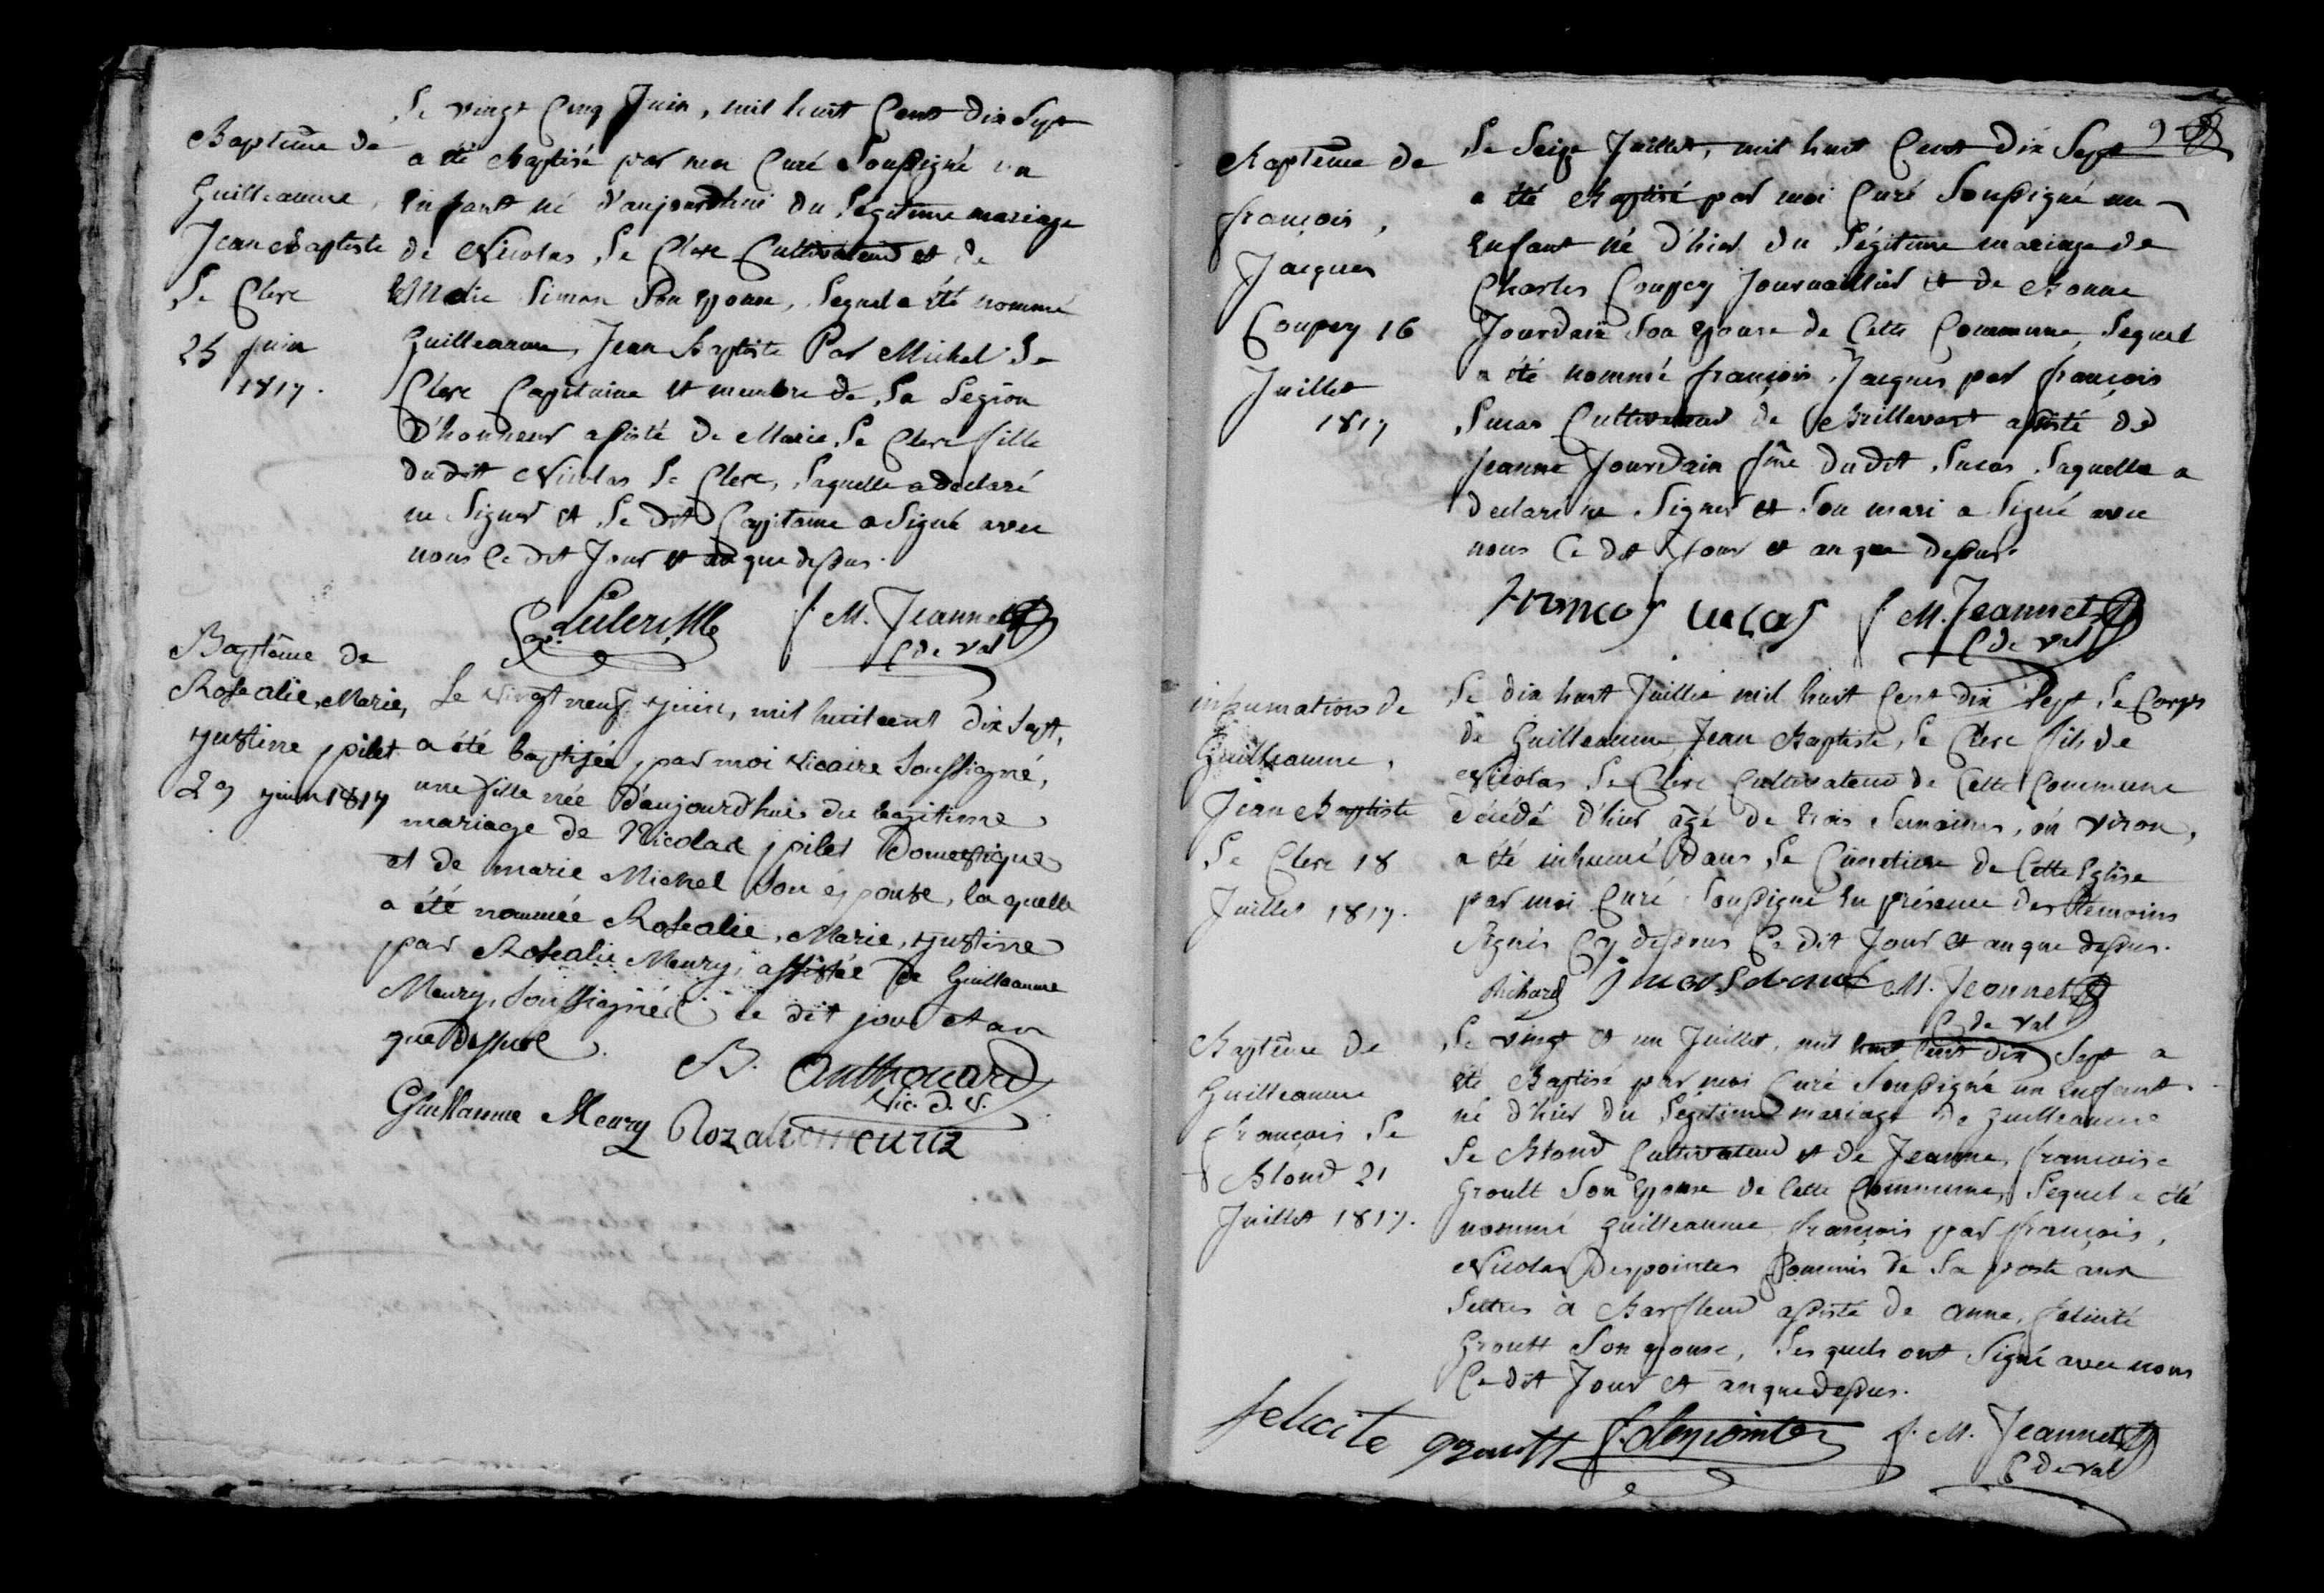 Baptême de
Guilleaume,
Jean Baptiste
Le Clerc
25 juin
1817.
Le vingt Cinq Juin, mil huit Cent dix Sept
a été Baptisé par moi Curé Soussigné un
Enfant né d'aujourdhui du Légitime mariage
de Nicolas Le Clerc Cultivateur et de
Simon Son Epouse, Lequel a été nommé
Guilleaume, Jean Baptiste Par Michel Le
Clerc Capitaine et membre de La Légion
D'honneur assisté de Marie Le Clerc fille
dudit Nicolas Le Clerc, Laquelle a declaré
ne Signer et Le dit Capitaine a Signé avec
nous Ce dit Jour et an que dessus.
f. M. Jeannet
C de Val
Baptême de
Rosealie, Marie,
justine pilet
29 juin 1817
Le vingt neuf juin, mil huit cent dix Sept,
a été baptisée, par moi vicaire Soussigné,
une fille née d'aujourdhui du legitime
mariage de Nicolas pilet Domestique
et de marie Michel Son épouse, la quelle
a été nommée Rosealie, Marie, justine
par Rosealie Meury, assistée de Guilleaume
Meury, Soussignés ce dit jour et an
que Dessus.
B. Anthouard
Vic. d. V.
Guillaume Meury Rozalie meuriz
Baptême de
françois,
Jacques
Coupey 16
Juillet
1817
9
Le Seize Juillet, mil huit Cent dix Sept
a été Baptisé par moi Curé Soussigné un
Enfant né d'hier du Légitime mariage de
Charles Coupey Journaillier et de Bonne
Jourdain Son Epouse de Cette Commune, Lequel
a été nommé françois Jacques par françois
Lucas Cultivateur de Brillevast assisté de
Jeanne Jourdain fme dudit Lucas Laquelle a
declaré ne Signer et Son mari a Signé avec
nous Ce dit Jour et an que dessus.
francois lucas f. M. Jeannet
C de Val
inhumation de
Guilleaume,
Jean Baptiste
Le Clerc 18
Juillet 1817.
Le dix huit Juillet mil huit Cent dix Sept Le Corps
de Guilleaume Jean Baptiste Le Clerc fils de
Nicolas Le Clerc Cultivateur de Cette Commune
décédé d'hier agé de trois Semaines, en viron,
a été inhumé Dans Le Cimetiere de Cette Eglise
par moi Curé Soussigné En présence des témoins
Signés Cy dessous Ce dit Jour et an que dessus.
Richard M. Jeannet
C de Val
Baptême de
Guilleaume
françois Le
Blond 21
Juillet 1817.
Le vingt et un Juillet, mil huit Cent dix Sept a
été Baptisé par moi Curé Soussigné un Enfant
né d'hier du Légitime mariage de guilleaume
Le Blond Cultivateur et de Jeanne, françoise
Groult Son Epouse de Cette Commune, Lequel a été
nommé guilleaume françois par françois,
Nicolas Despointes Commis de La poste aux
Lettres à Barfleur assisté de anne, felicité
Groult Son epouse, Les quels ont Signé avec nous
Ce dit Jour et an que dessus.
felicite groult f. despointes f. M. Jeannet
C de Val